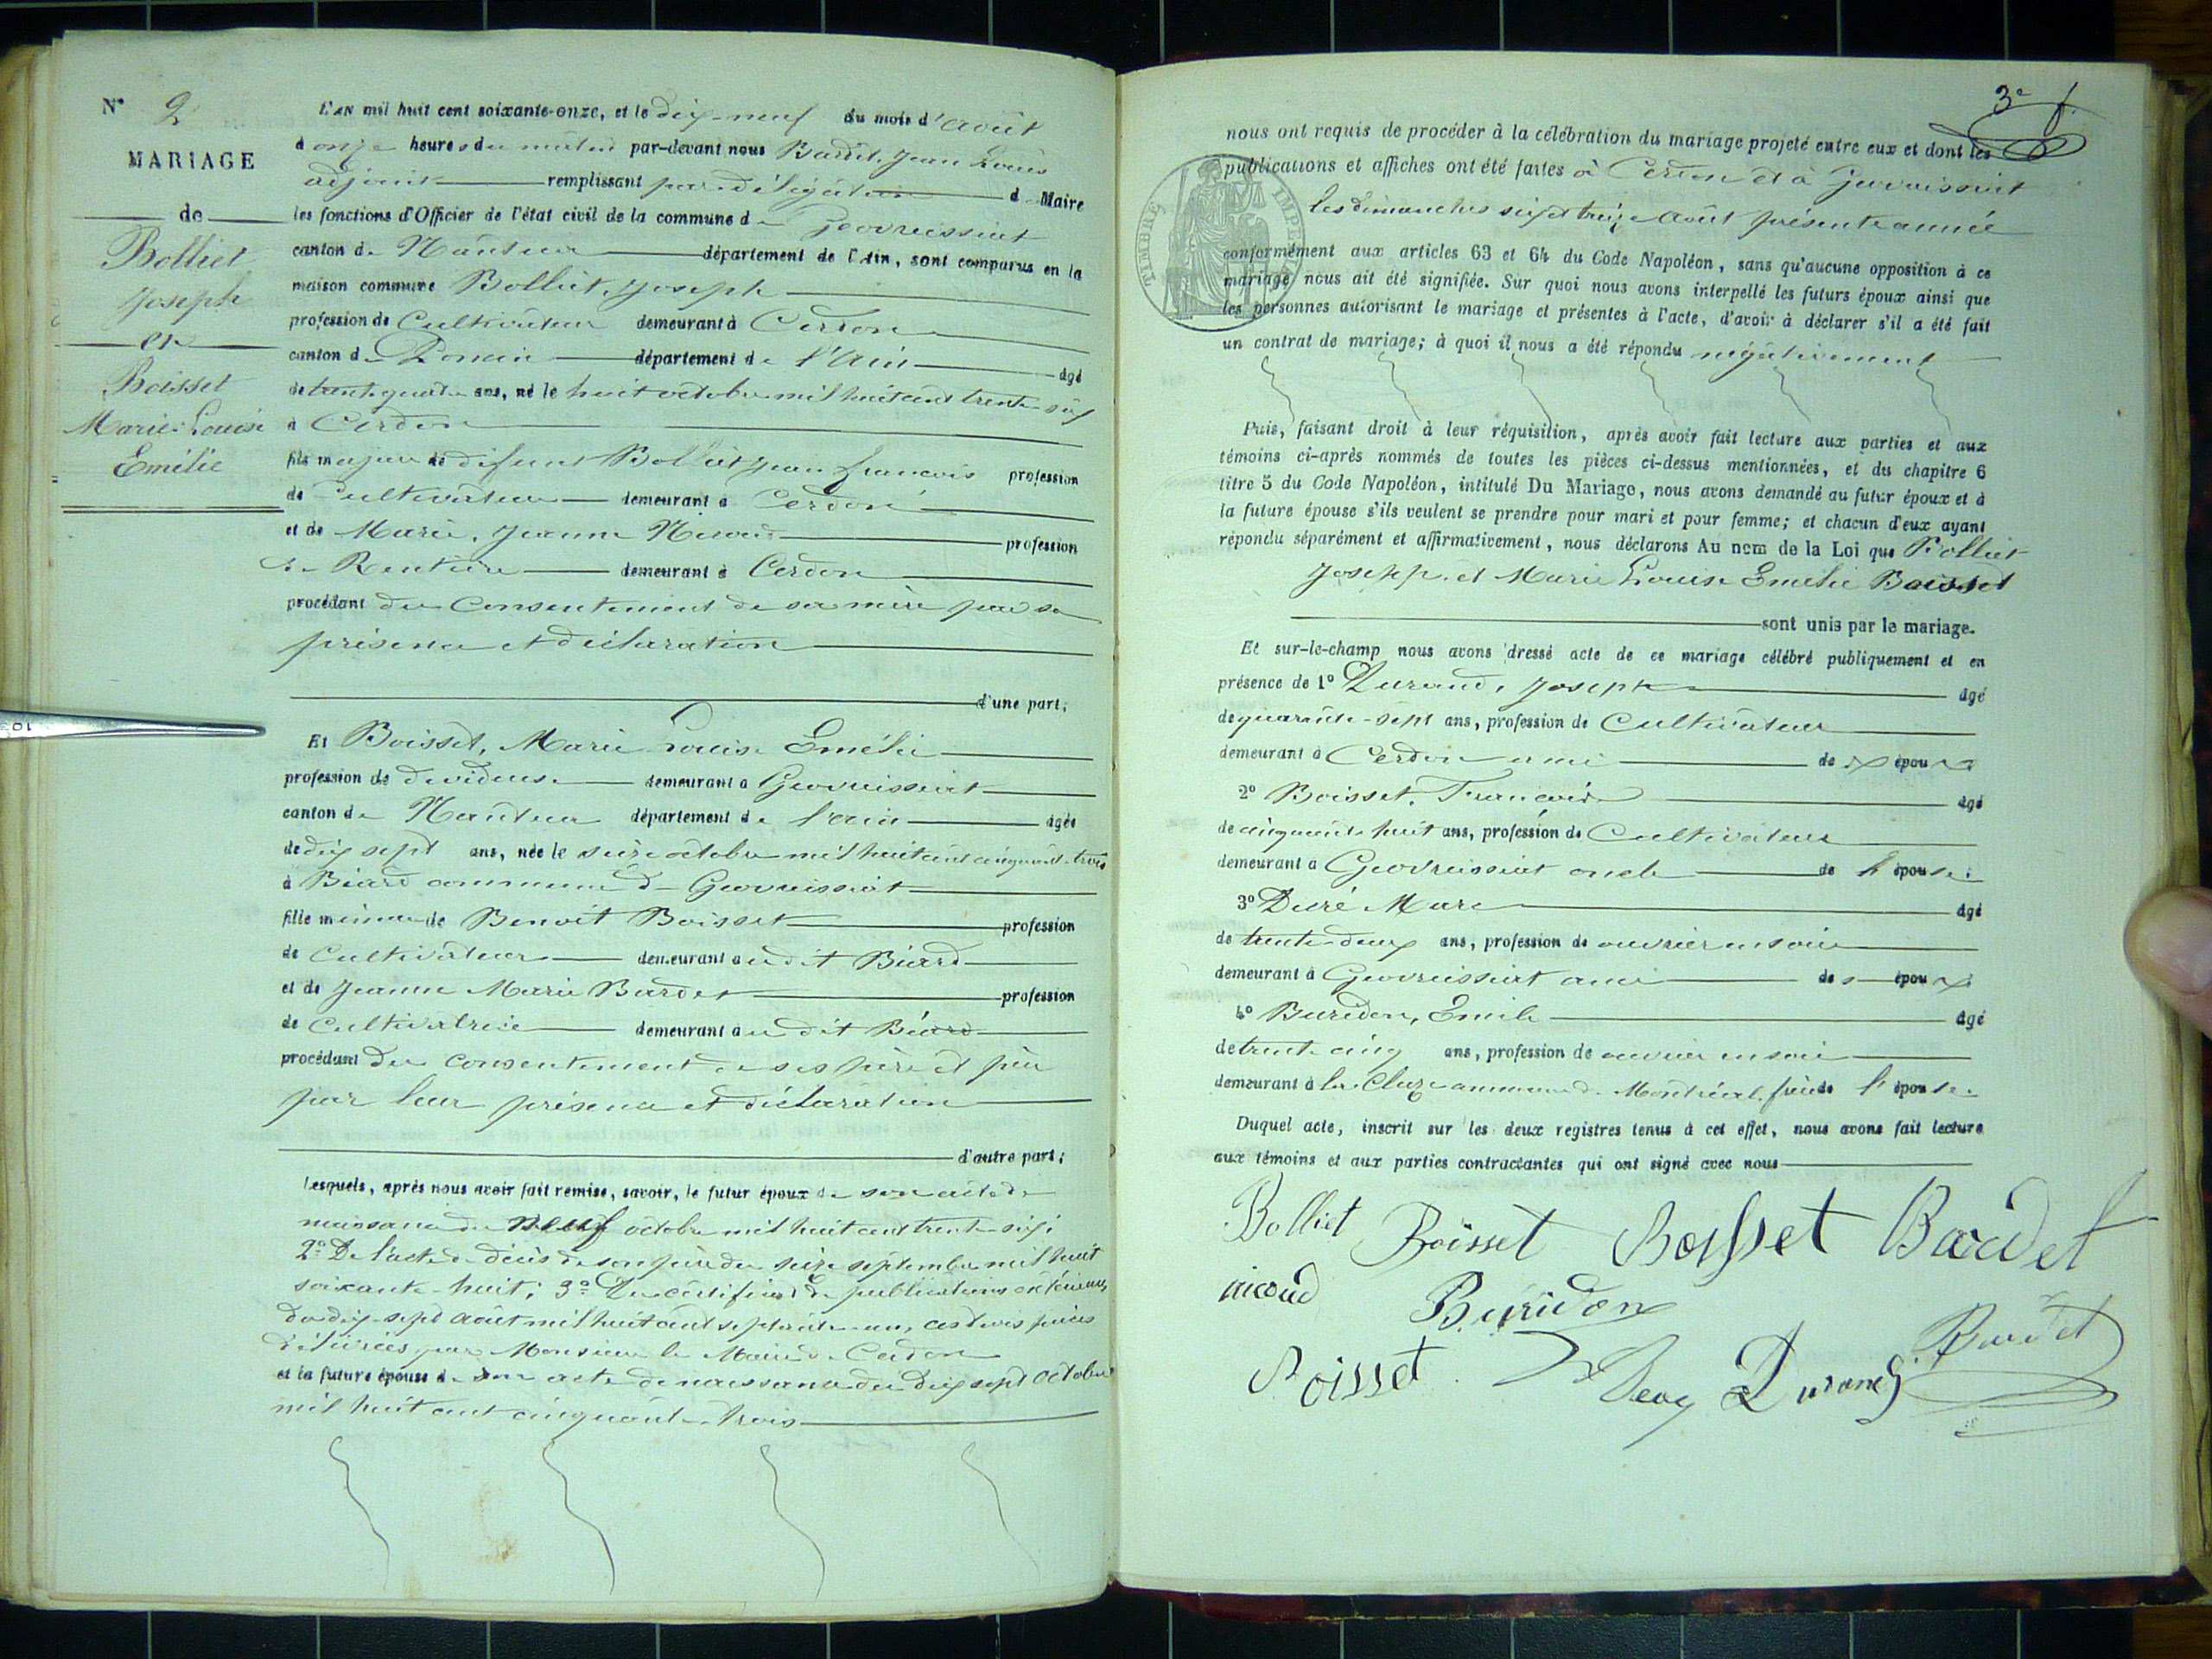 N° 2
MARIAGE
de
Bolliet
Joseph
et
Boisset
Marie Louise
Emélie
L'AN mil huit cent soixante-onze, et le dix-neuf du mois d'août
à onze heures du matin par-devant nous Bardet, Jean Louis
adjoint remplissant par délégation d Maire
les fonctions d'Officier de l'état civil de la commune de Geovreissiat
canton de Nantua département de l'Ain, sont comparus en la
maison commune Bolliet, Joseph
profession de Cultivateur demeurant à Cerdon
canton de Poncin département de l'Ain âgé
de trente quatre ans, né le huit octobre mil huit cent trente six
à Cerdon
fils majeur de défunt Bolliet Jean François profession
de Cultivateur demeurant à Cerdon
et de Marie, Jeanne Nicoud profession
de Rentière demeurant à Cerdon
procédant du Consentement de sa mère par sa
présence et déclaration
d'une part;
Et Boisset, Marie Louise Emélie
profession de dévideuse demeurant à Geovreissiat
canton de Nantua département de l'Ain âgée
de dix sept ans, née le seize octobre mil huit cent cinquante-trois
à Béard commune de Geovreissiat
fille mineure de Benoît Boisset profession
de Cultivateur demeurant audit Béard
et de Jeanne Marie Bardet profession
de Cultivatrice demeurant audit Béard
procédant du consentement de ses père et
par leur présence et déclaration
d'autre part;
Lesquels, après nous avoir fait remise, savoir, le futur époux de son acte de
naissance du neuf octobre mil huit cent trente-six;
2° De l'acte de décès de son père du seize septembre mil huit
soixante-huit; 3° Du certificat de publications extérieures
du dix-sept août mil huit cent septante-un, ces trois pièces
délivrées par Monsieur le Maire de Cerdon
et la future épouse de son acte de naissance du dix sept octobre
mil huit cent cinquante-trois
3e f
nous ont requis de procéder à la célébration du mariage projeté entre eux et dont les
publications et affiches ont été faites à Cerdon et à Geovreissiat
les dimanches six et treize Août présente année
conformément aux articles 63 et 64 du Code Napoléon, sans qu'aucune opposition à ce
mariage nous ait été signifiée. Sur quoi nous avons interpellé les futurs époux ainsi que
les personnes autorisant le mariage et présentes à l'acte, d'avoir à déclarer s'il a été fait
un contrat de mariage; à quoi il nous a été répondu négativement
TIMBRE IMPE
Puis, faisant droit à leur réquisition, après avoir fait lecture aux parties et aux
témoins ci-après nommés de toutes les pièces ci-dessus mentionnées, et du chapitre 6
titre 5 du Code Napoléon, intitulé Du Mariage, nous avons demandé au futur époux et à
la future épouse s'ils veulent se prendre pour mari et pour femme; et chacun d'eux ayant
répondu séparément et affirmativement, nous déclarons Au nom de la Loi que Bolliet
Joseph, et Marie Louise Emélie Boisset
sont unis par le mariage.
Et sur-le-champ nous avons dressé acte de ce mariage célébré publiquement et en
présence de 1° Durand, Joseph âgé
de quarante-sept ans, profession de Cultivateur
demeurant à Cerdon ami des époux
2° Boisset, François âgé
de cinquante huit ans, profession de Cultivateur
demeurant à Geovreissiat oncle de l'épouse;
3° Ducré Marc âgé
de trente-deux ans, profession de ouvrier en soie
demeurant à Geovreissiat ami des époux
4° Buridon, Emile âgé
de trente cinq ans, profession de ouvrier en soie
demeurant à la Cluze commune de Montréal, de l'épouse.
Duquel acte, inscrit sur les deux registres tenus à cet effet, nous avons fait lecture
aux témoins et aux parties contractantes qui ont signé avec nous
Bolliet Boisset Boisset Bardet
nicoud Buridon
Boisset Durand Bardet